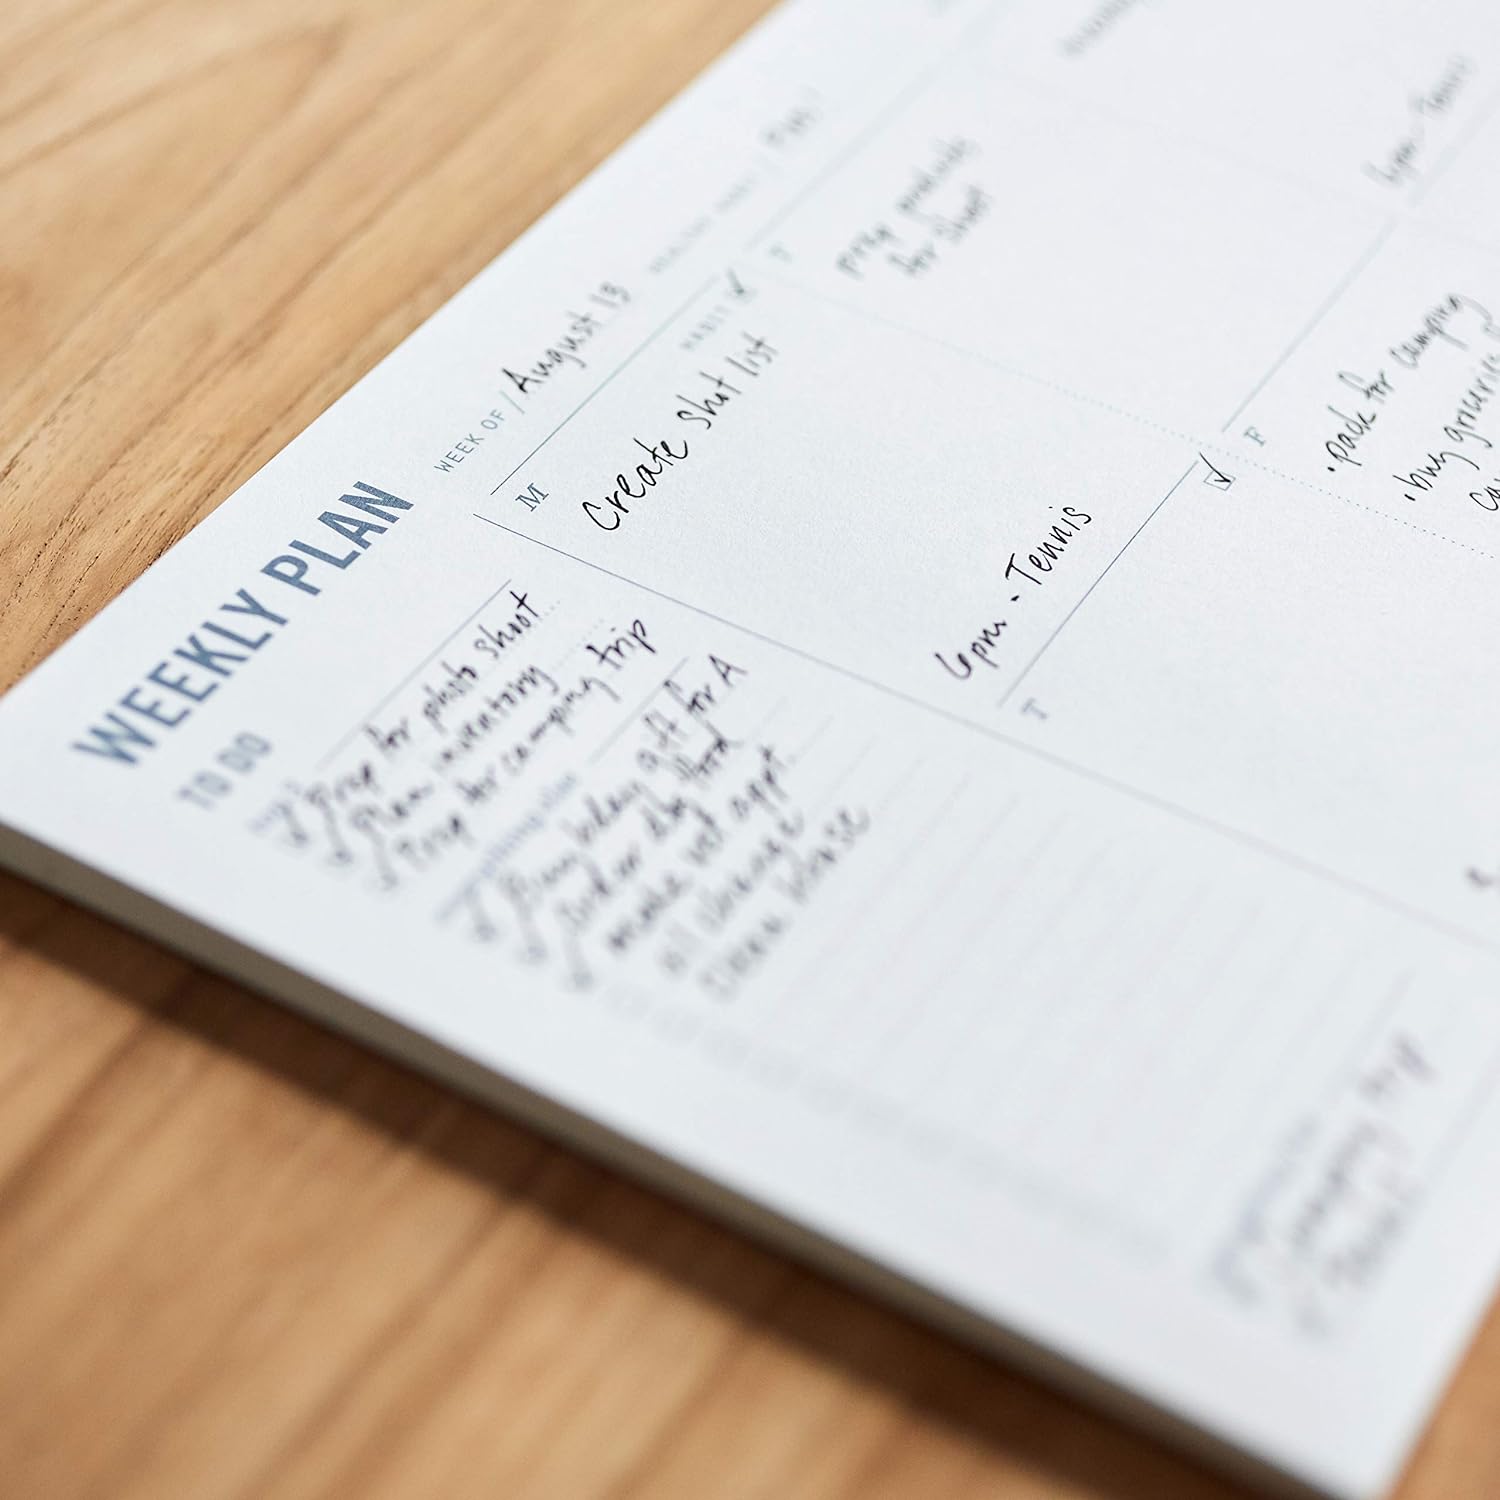 WEEKLY PLAN
WEEK OF / August 13
TO DO
Prep for photo shoot
Plan inventory
Prep for camping trip
everything else
Buy bday gift for A
order dog food
make vet appt.
oil change
clean house
M
HABIT
Create shot list
6pm - Tennis
T
prep products
for shoot
T
6pm - Tennis
F
• pack for camping
• buy groceries
camping trip